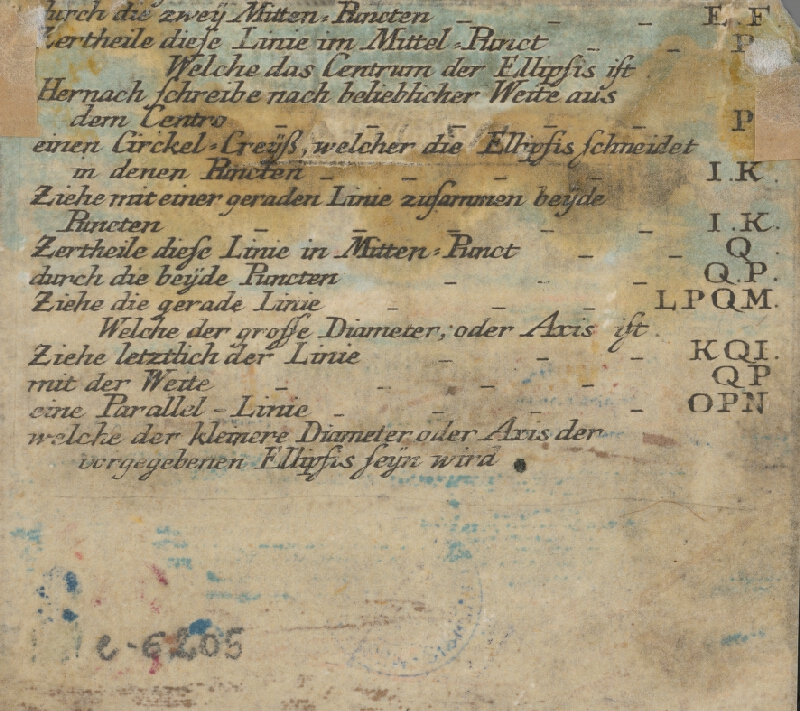 durch die zweÿ Mitten-Puncten – – – E.F.
Zertheile diese Linie im Mittel-Punct – – P
Welche das Centrum der Ellipsis ist.
Hernach schreibe nach belieblicher Weite aus
dem Centro – – – – – P
einen Circkel-Creÿß, welcher die Ellipsis schneidet
in denen Puncten – – – – I.K.
Ziehe mit einer geraden Linie zusammen beÿde
Puncten – – – – – I.K.
Zertheile diese Linie in Mitten-Punct – – Q.
durch die beÿde Puncten – – – Q.P.
Ziehe die gerade Linie – – – LPQM.
Welche der grosse Diameter, oder Axis ist.
Ziehe letztlich der Linie – – – KQI.
mit der Weite – – – – QP
eine Parallel-Linie – – – – OPN
welche der kleinere Diameter oder Axis der
vorgegebenen Ellipsis seÿn wird.